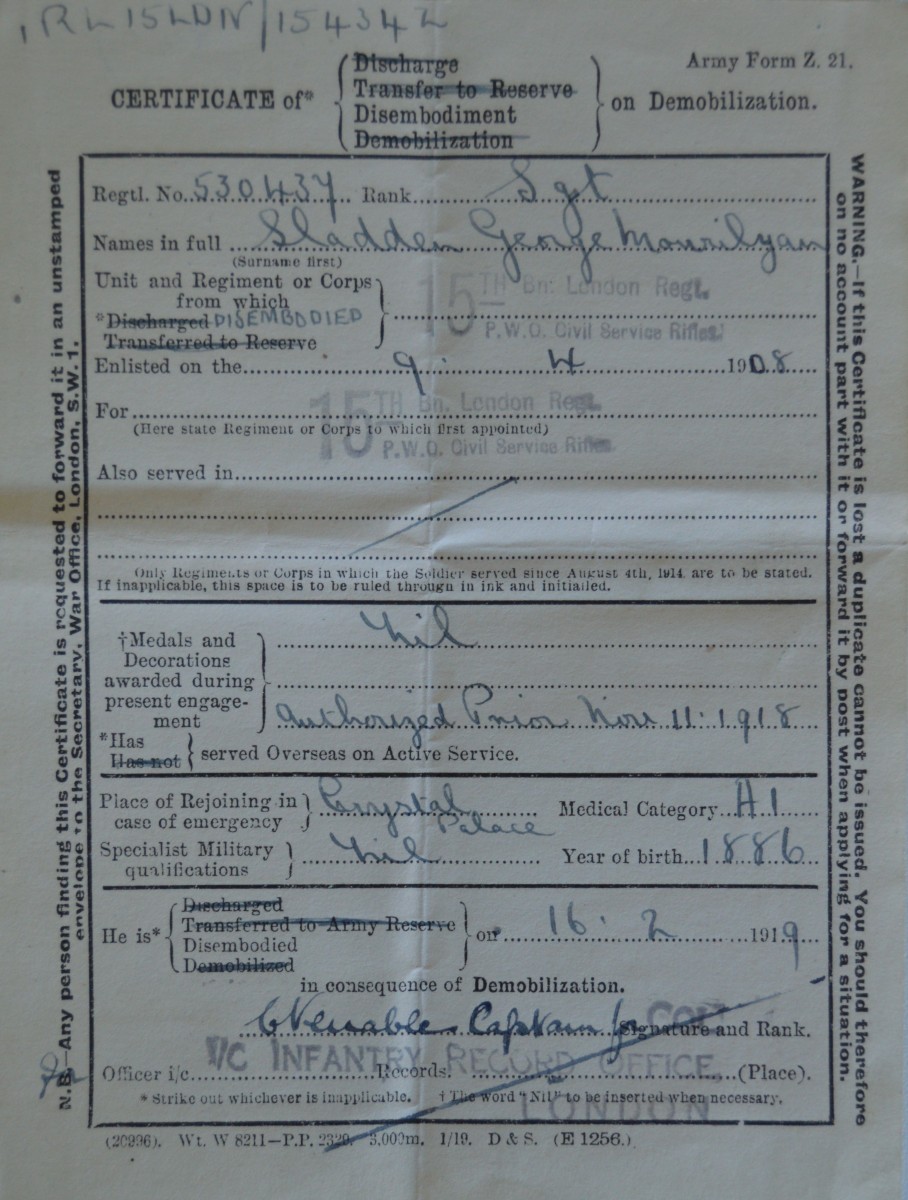 1RL15LDN/154342
Army Form Z. 21.
CERTIFICATE of* { Discharge
Transfer to Reserve
Disembodiment
Demobilization } on Demobilization.
Regtl. No. 530437 Rank Sgt
Names in full Sladden George Mourilyan
(Surname first)
Unit and Regiment or Corps
from which
*Discharged DISEMBODIED
Transferred to Reserve
15TH Bn: London Regt.
P.W.O. Civil Service Rifles.
Enlisted on the 9. 4 1908
For 15TH Bn. London Regt.
(Here state Regiment or Corps to which first appointed)
P.W.O. Civil Service Rifles
Also served in
Only Regiments or Corps in which the Soldier served since August 4th, 1914, are to be stated.
If inapplicable, this space is to be ruled through in ink and initialled.
†Medals and
Decorations
awarded during
present engage-
ment
Nil
Authorized Prior Nov 11. 1918
*Has
Has not } served Overseas on Active Service.
Place of Rejoining in
case of emergency } Crystal
Palace
Medical Category A1
Specialist Military
qualifications } Nil
Year of birth 1886
He is* { Discharged
Transferred to Army Reserve
Disembodied
Demobilized } on* 16. 2 1919
in consequence of Demobilization.
Venables Captain for Signature and Rank.
I/C INFANTRY RECORD OFFICE,
Officer i/c Records. (Place).
LONDON
* Strike out whichever is inapplicable. † The word "Nil" to be inserted when necessary.
(20996). Wt. W 8211—P.P. 2329. 5,000m. 1/19. D & S. (E 1256.)
N.B.—Any person finding this Certificate is requested to forward it in an unstamped
envelope to the Secretary, War Office, London, S.W. 1.
WARNING.—If this Certificate is lost a duplicate cannot be issued. You should therefore
on no account part with it or forward it by post when applying for a situation.